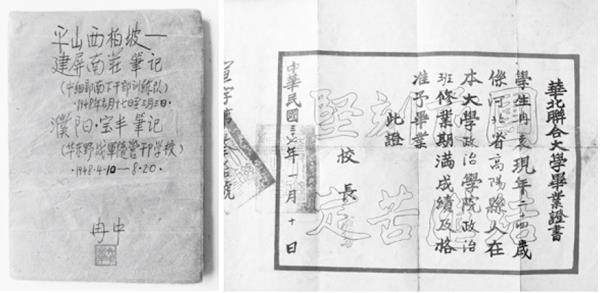 平山西柏坡—
建屏南莊笔记
(中组部南下干部训练队)
濮阳·宝丰笔记
(华东野战军随营干P学校)
·1948·4·10—8·20·
冉中
華北聯合大學畢業證書
學生冉 現年二十四歲
係河北省高陽縣人在
本大學政治學院政治
班修業期滿成績及格
准予畢業
此證
校長
中華民國三十 年一月十日
團結
刻苦
堅定